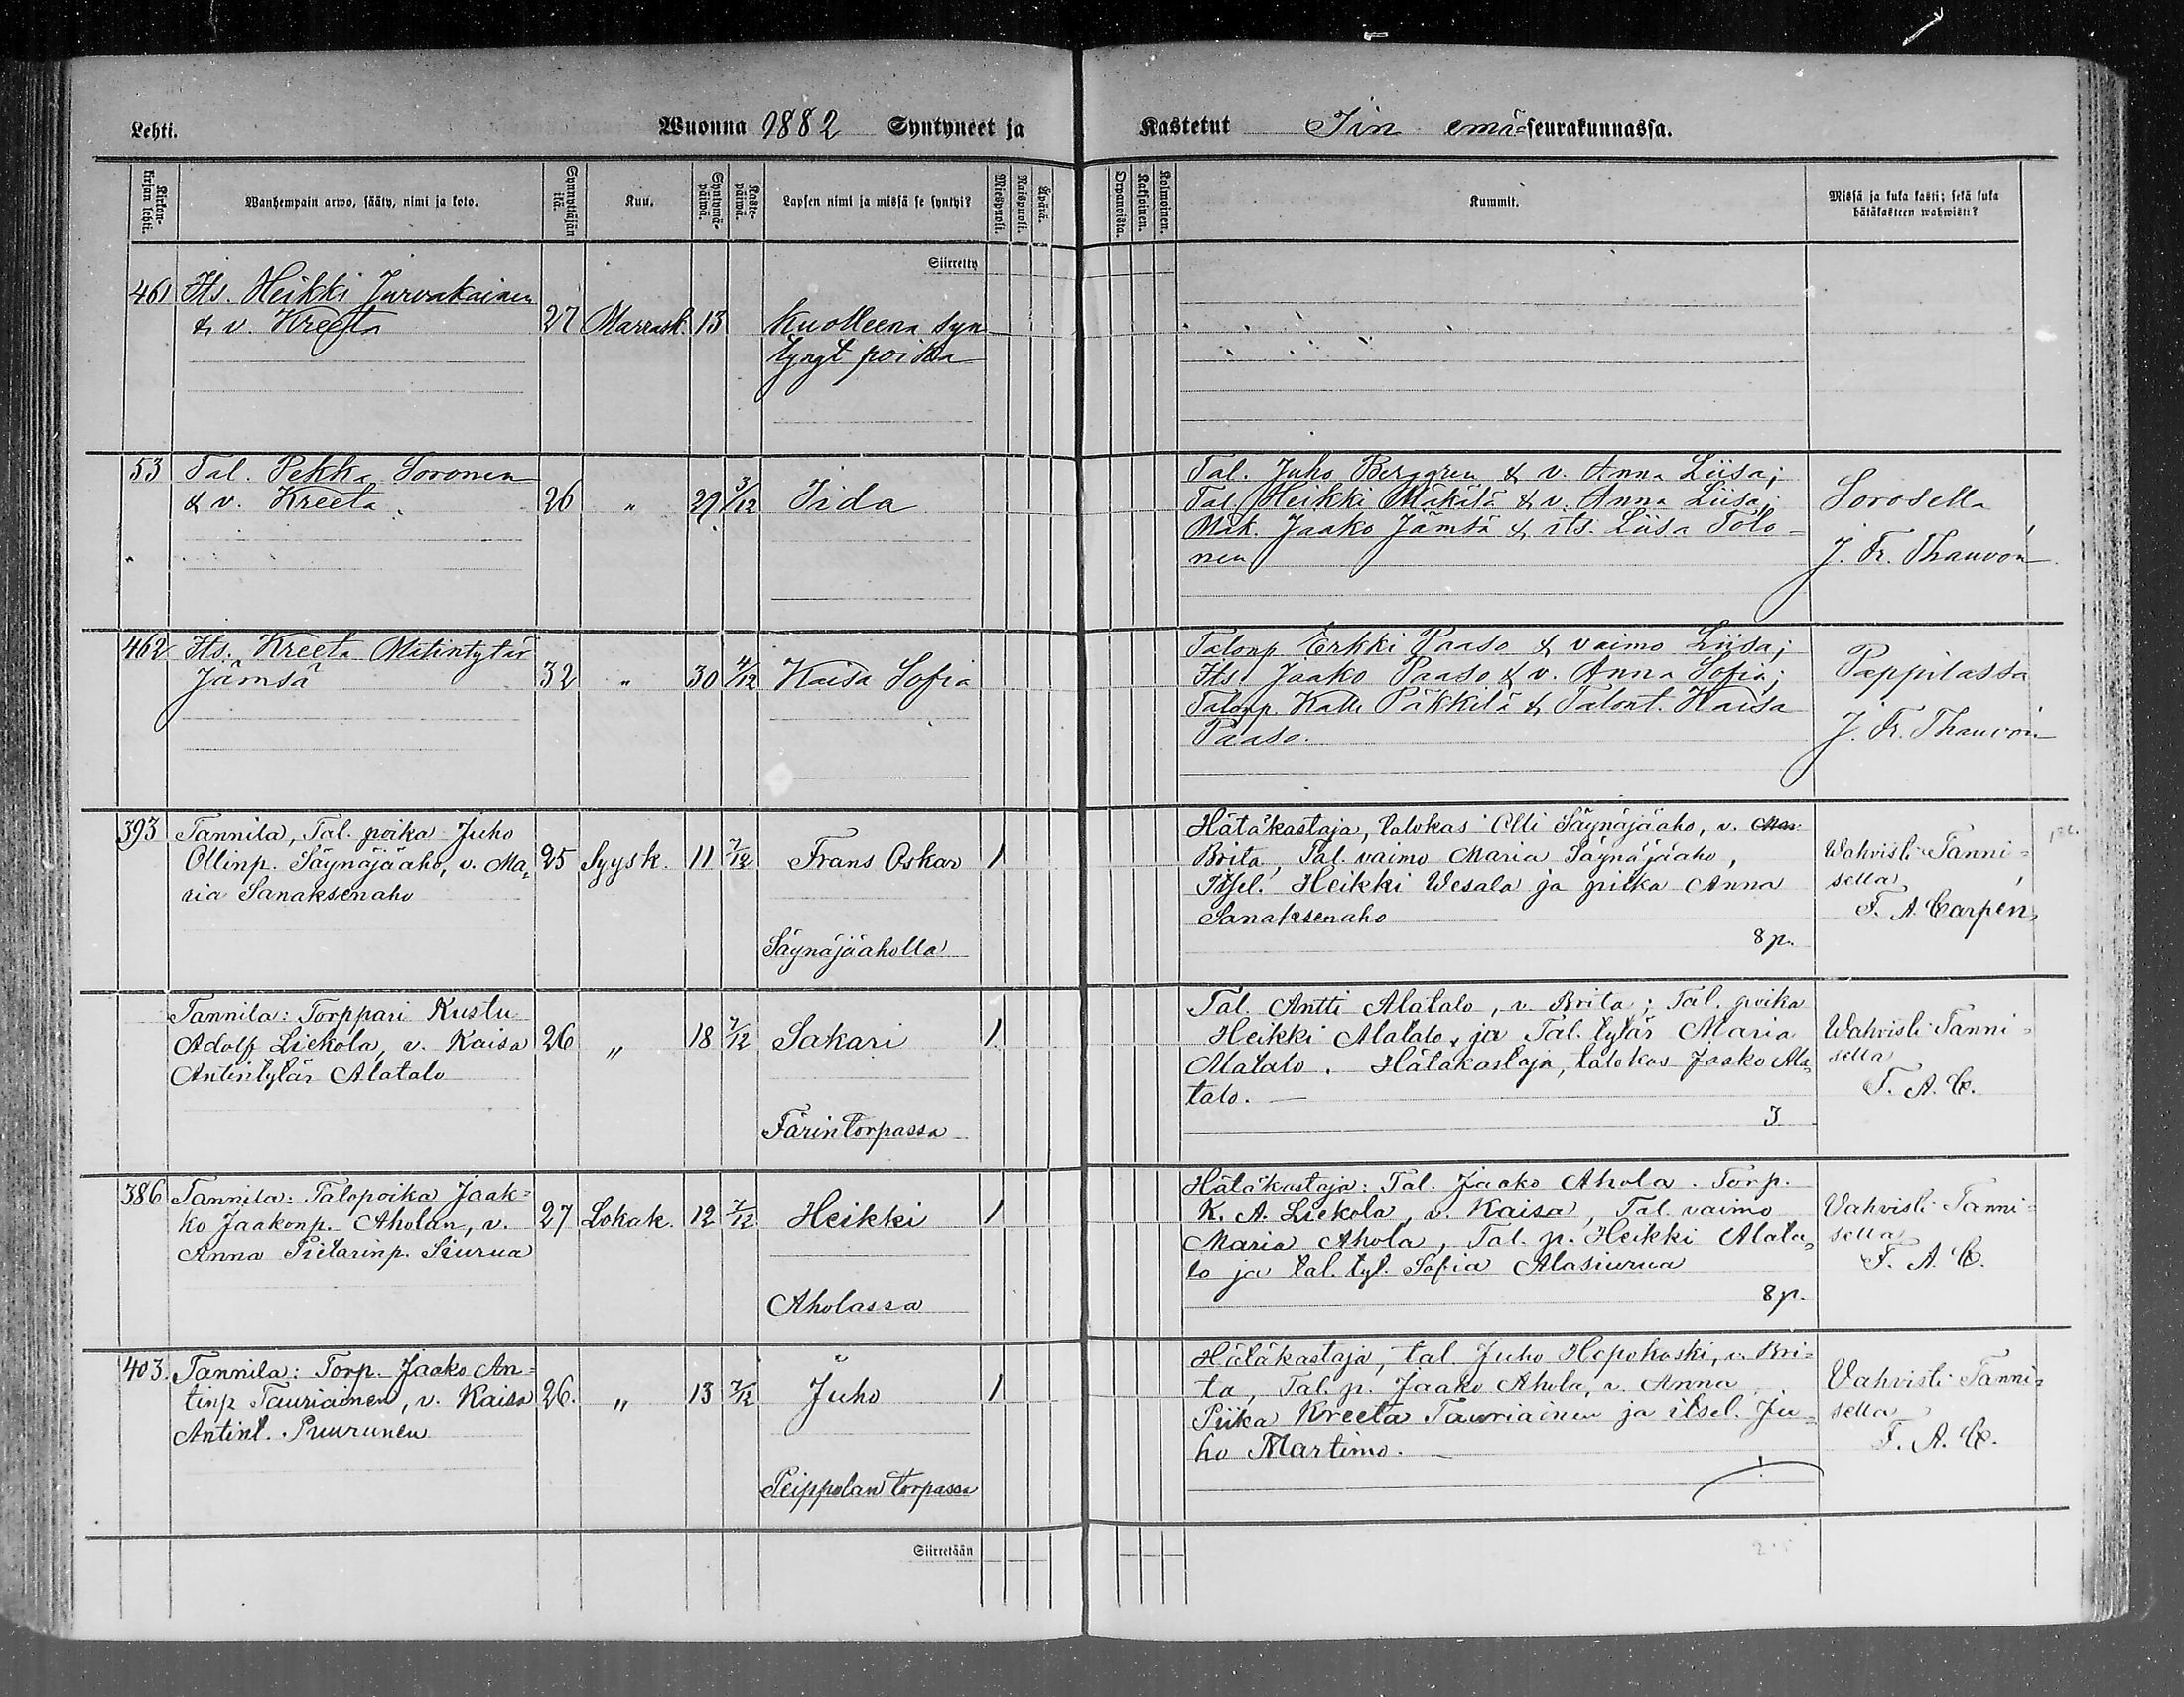 Lehti. Wuonna 1882 Syntyneet ja Kastetut Iin emä-seurakunnassa.
Kirkonkirjan lehti. Wanhempain arwo, sääty, nimi ja koto. Synnyttäjän ikä. Kuu. Syntymäpäiwä. Kastepäiwä. Lapsen nimi ja missä se syntyi? Miespuoli. Waimopuoli. Äpärä. Kaksoinen. Kolmoinen. Kummit. Missä ja kuka kasti; sekä kuka hätäkasteen wahwisti?
Siirretty
461 Its. Heikki Jurvakainen
& v. Kreeta 27 Marrask. 13 Kuolleena syn
tynyt poika
53 Tal. Pekka Soronen
& v. Kreeta. 26 „ 29 3/12 Iida
Tal. Juho Berggren & v. Anna Liisa;
Tal. Heikki Mäkilä & v. Anna Liisa;
Mäk. Jaako Jämsä & its. Liisa Tolo-
nen
Sorosella
J. Fr. Thauvón
462 Its. Kreeta Matintytär
Jämsä 32 „ 30 4/12 Kaisa Sofia
Talonp. Erkki Paaso & vaimo Liisa;
Its. Jaako Paaso & v. Anna Sofia;
Talonp. Kalle Päkkilä & Talont. Kaisa
Paaso.
Pappilassa
J. Fr. Thauvón
393 Tannila, Tal. poika Juho
Ollinp. Säynäjäaho, v. Ma-
ria Sanaksenaho
25 Syysk. 11 7/12 Frans Oskar 1
Säynäjäaholla
Hätäkastaja, talokas Olli Säynäjäaho, v. Mar
Brita, Tal. vaimo Maria Säynäjäaho,
Itsel. Heikki Wesala ja piika Anna
Sanaksenaho
8 p.
Wahvisti Tanni-
sella
F. A. Carpén
Tannila: Torppari Kustu
Adolf Liekola, v. Kaisa
Antintytär Alatalo
26 „ 18 7/12 Sakari 1
Färintorpassa
Tal. Antti Alatalo, v. Brita; Tal. poika
Heikki Alatalo, ja Tal. tytär Maria
Alatalo. Hätäkastaja, talokas Jaako Ala-
talo. —
3
Wahvisti Tanni-
sella
F. A. C.
386 Tannila: Talopoika Jaak-
ko Jaakonp. Aholan, v.
Anna Pietarinp. Siurua
27 Lokak. 12 7/12 Heikki 1
Aholassa
Hätäkastaja: Tal. Jaako Ahola. Torp.
K. A. Liekola, v. Kaisa, Tal. vaimo
Maria Ahola, Tal. p. Heikki Alata-
lo ja tal. tyt. Sofia Alasiurua
8 p.
Vahvisti Tanni-
sella
F. A. C.
403. Tannila: Torp. Jaako An-
tinp Tauriainen, v. Kaisa
Antint. Puurunen
26. „ 13 7/12 Juho 1
Peippolan torpassa
Hätäkastaja, tal. Juho Hepokoski, v. Bri-
ta, Tal. p. Jaako Ahola, v. Anna,
Piika Kreeta Tauriainen ja itsel. Ju-
ho Martimo. —
Vahvisti Tanni-
sella
F. A. C.
Siirretään